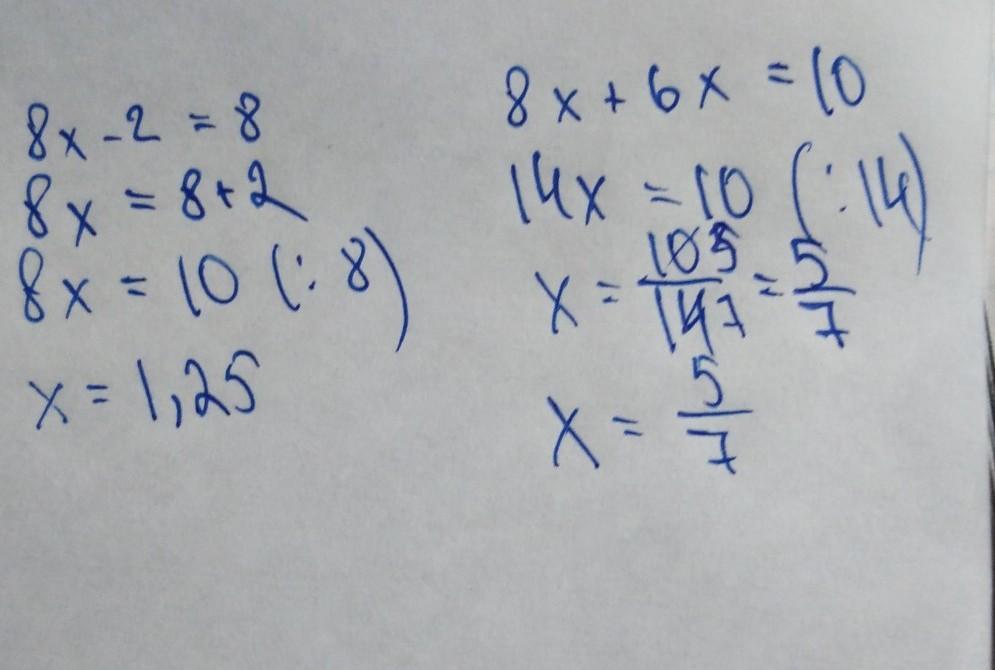 8x - 2 = 8
8x = 8 + 2
8x = 10 (: 8)
x = 1,25
8x + 6x = 10
14x = 10 (: 14)
x = 10 5 / 14 7 = 5/7
x = 5/7